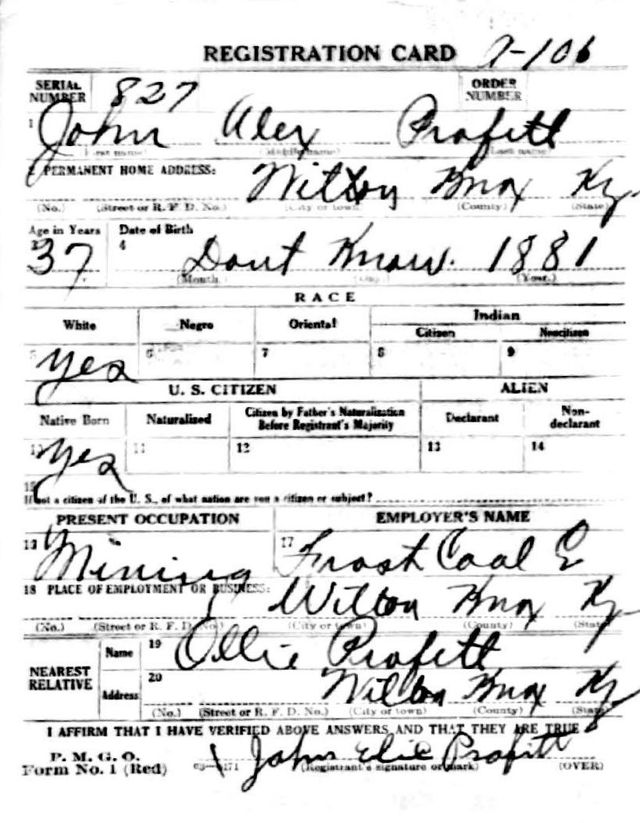 REGISTRATION CARD A-106
SERIAL NUMBER 827 ORDER NUMBER
1 John Alex Profitt
(First name) (Middle name) (Last name)
2 PERMANENT HOME ADDRESS: Wilton Knox Ky
(No.) (Street or R. F. D. No.) (City or town) (County) (State)
Age in Years Date of Birth
37 4 Dont Know. 1881
(Month.) (Day.) (Year.)
RACE
White Negro Oriental Indian
Citizen Noncitizen
5 Yes 6 7 8 9
U. S. CITIZEN ALIEN
Native Born Naturalized Citizen by Father's Naturalization Before Registrant's Majority Declarant Non-declarant
10 Yes 11 12 13 14
15
If not a citizen of the U. S., of what nation are you a citizen or subject?
PRESENT OCCUPATION EMPLOYER'S NAME
16 Mining 17 Frost Coal
18 PLACE OF EMPLOYMENT OR BUSINESS: Wilton Knox Ky
(No.) (Street or R. F. D. No.) (City or town) (County) (State)
NEAREST RELATIVE Name 19 Ollie Profitt
Address 20 Wilton Knox Ky
(No.) (Street or R. F. D. No.) (City or town) (County) (State)
I AFFIRM THAT I HAVE VERIFIED ABOVE ANSWERS AND THAT THEY ARE TRUE
P. M. G. O.
Form No. 1 (Red) John Elic Profitt
(Registrant's signature or mark) (OVER)